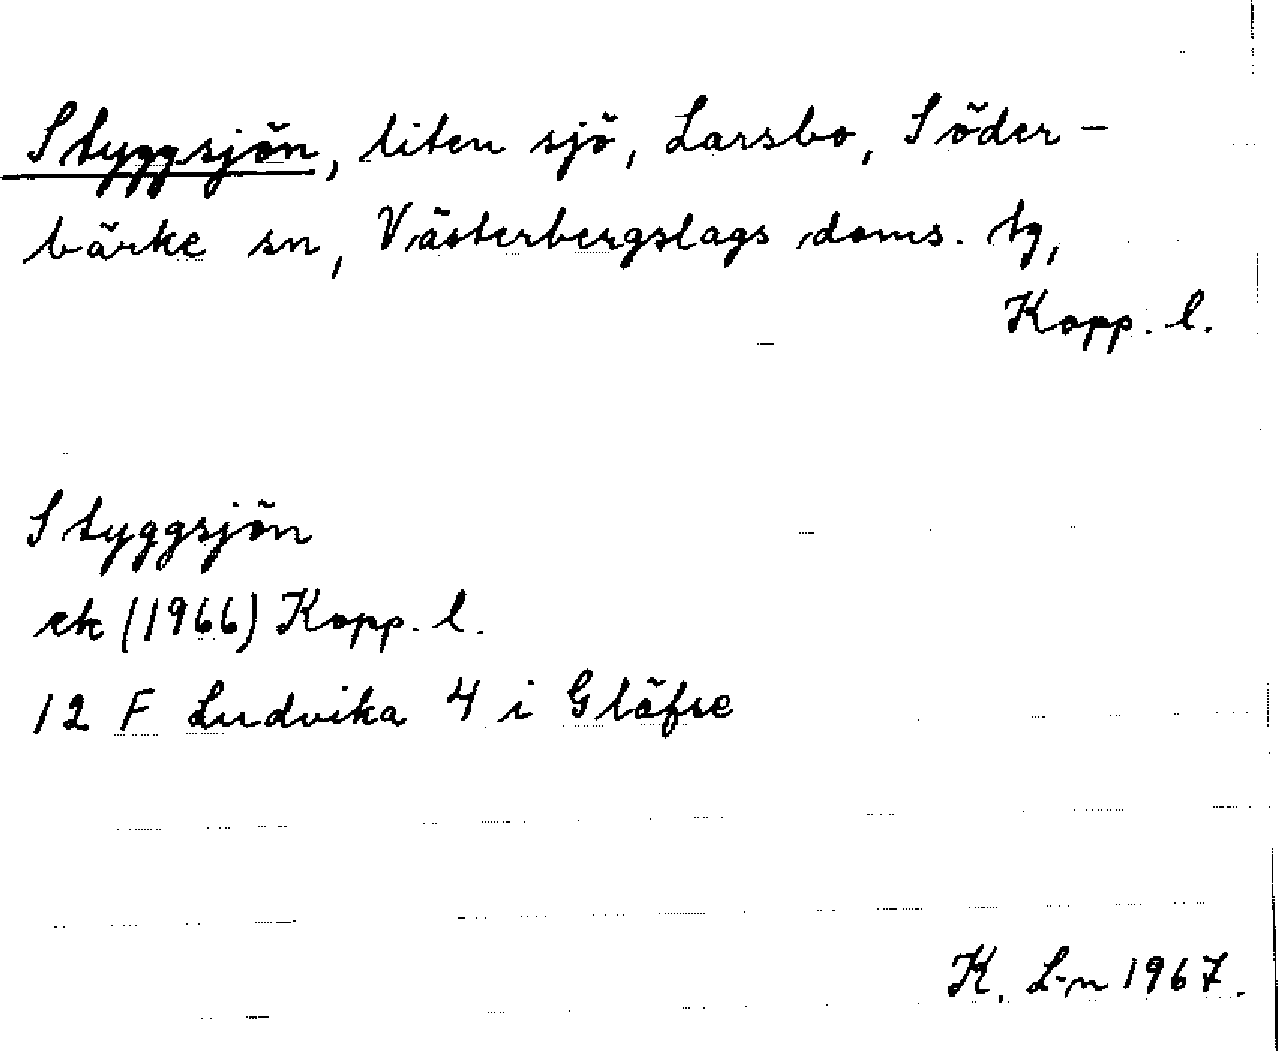 Styggsjön, liten sjö, Larsbo, Söder-
bärke sn, Västerbergslags doms. tg,
Kopp. l.
Styggsjön
ek (1966) Kopp. l.
12 F Ludvika 4 i Gläfse
K. L-n 1967.